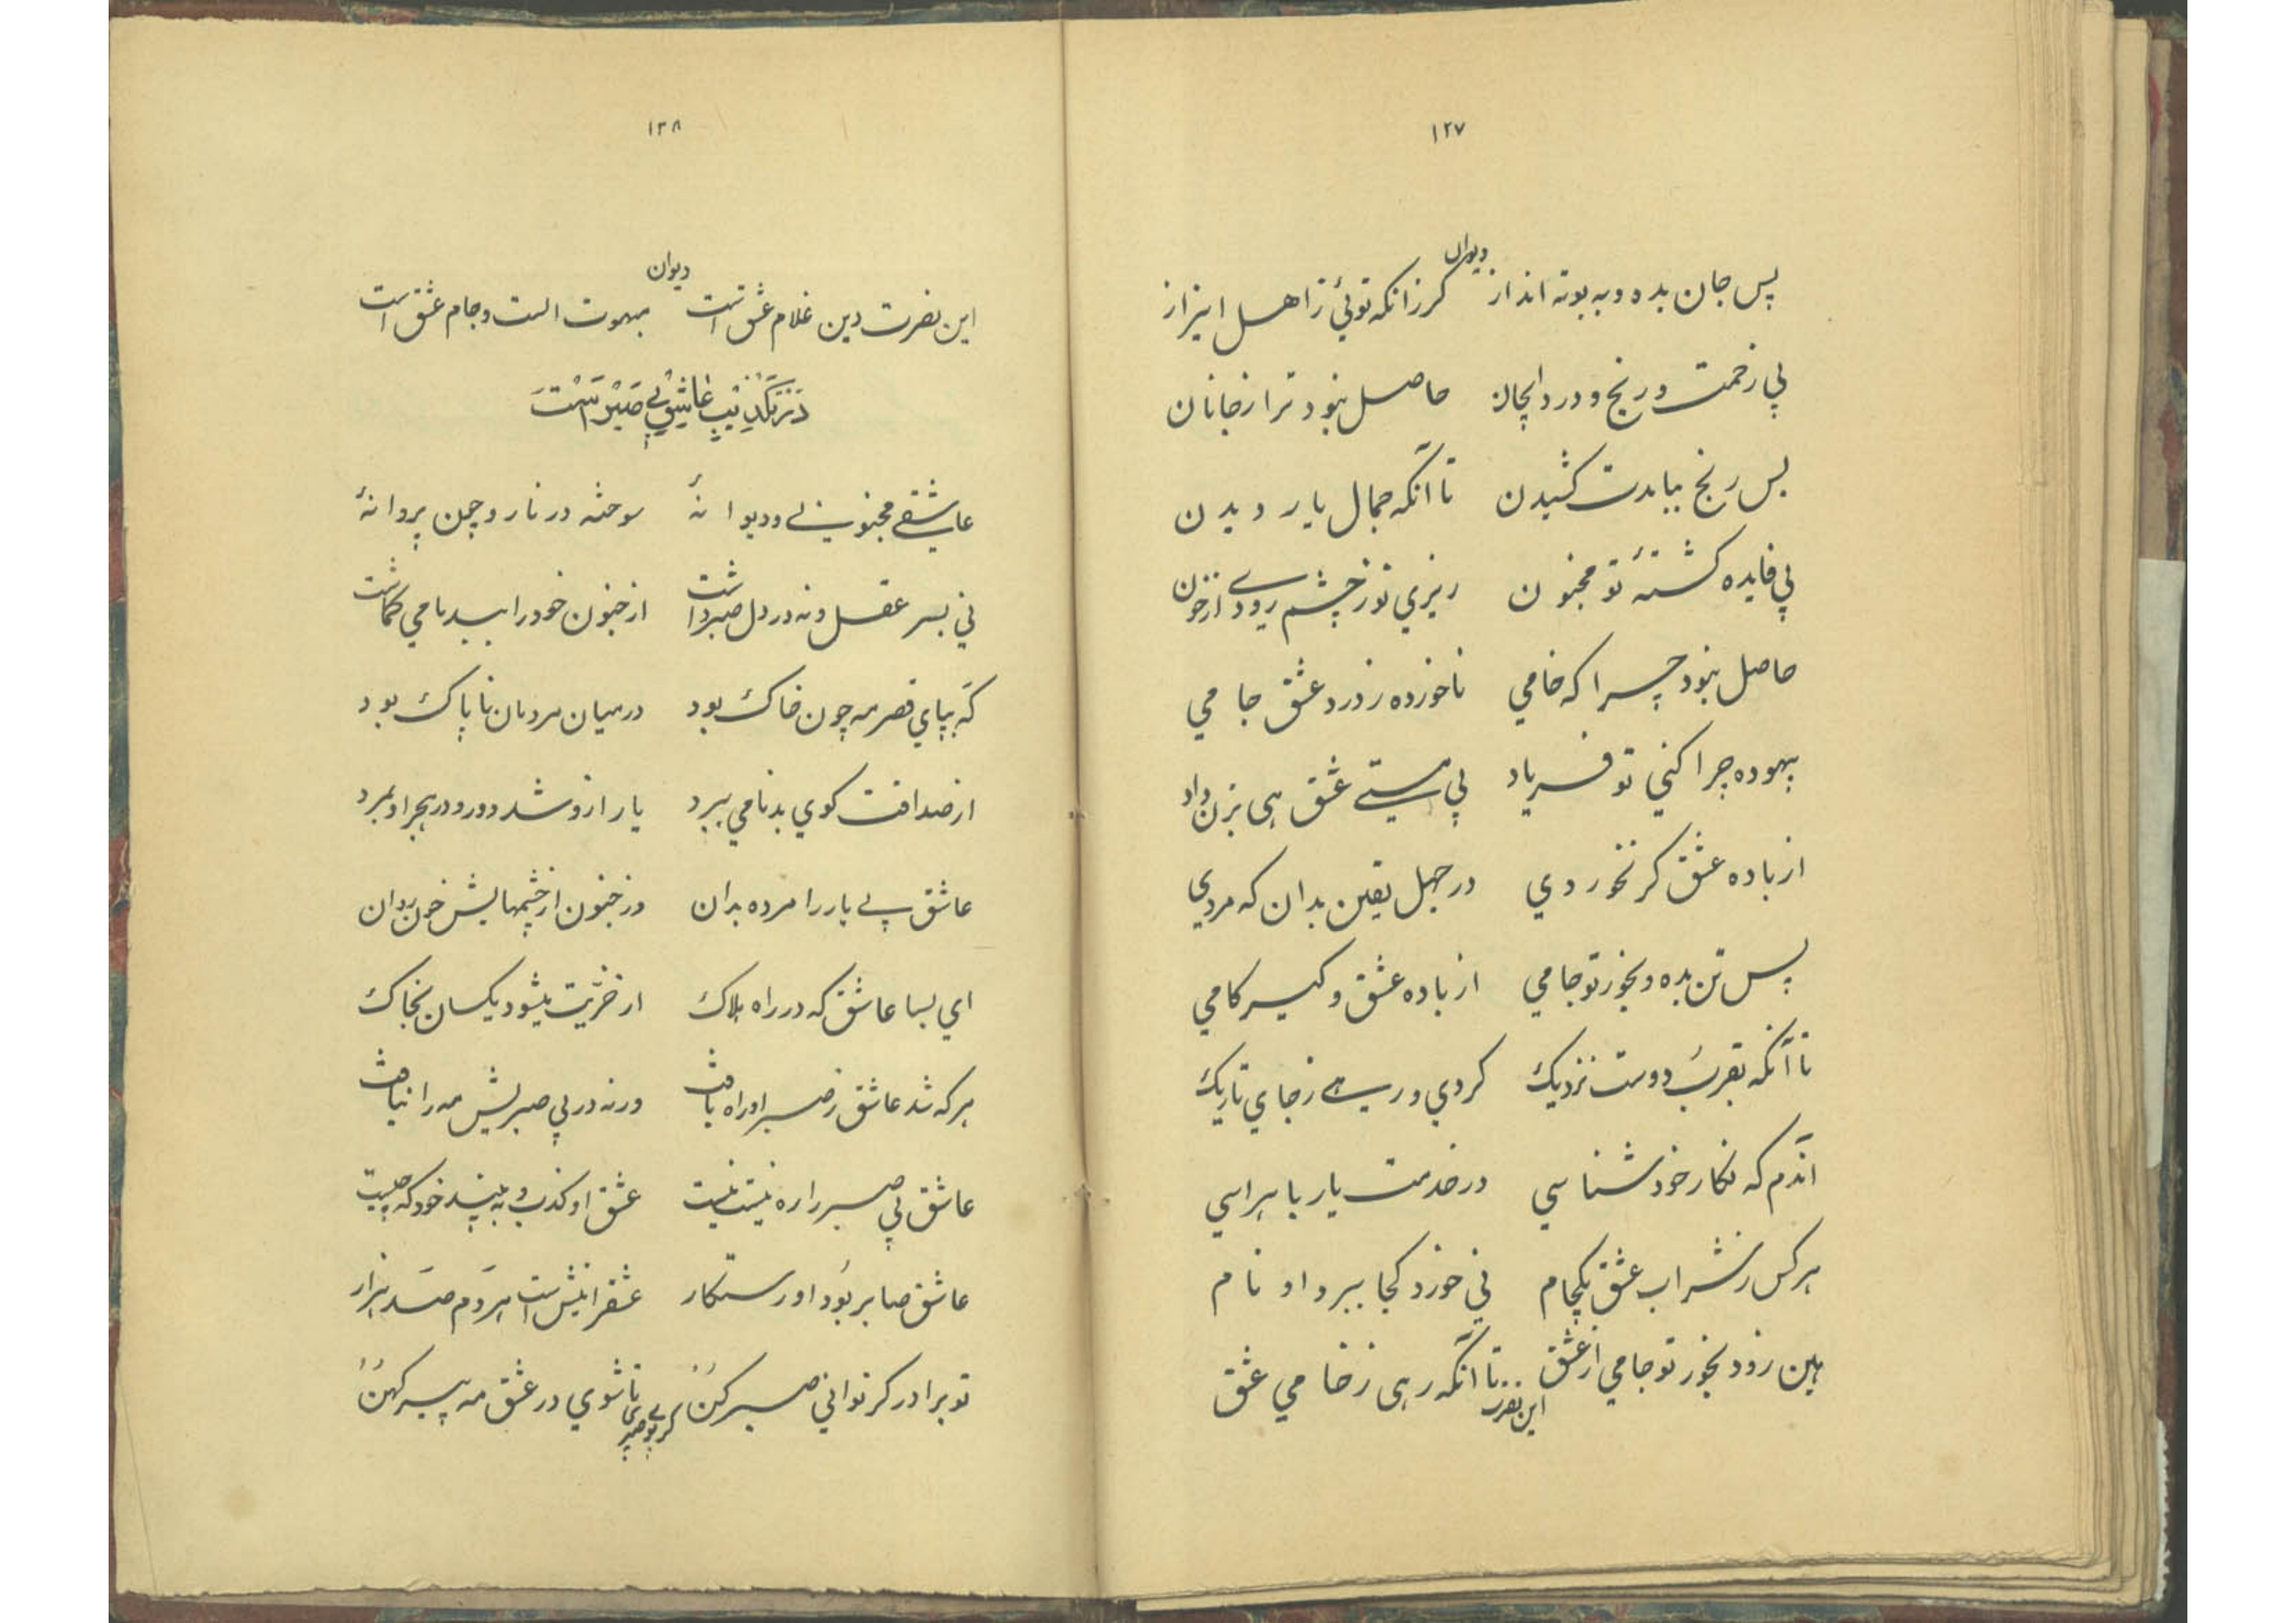 ۱۲۷
دیوان
پس جان بده و به بوته انداز گرزانکه توئی ز اهل ابزاز
پی زحمت و رنج و درد ایجان حاصل نبود ترا ز جانان
بس رنج ببایدت کشیدن تا آنکه جمال یار دیدن
پی فایده کشتهٔ تو مجنون ریزی تو ز چشم رودے از خون
حاصل نبود چرا که خامی ناخورده ز درد عشق جامی
بیهوده چرا کنی تو فریاد پی مستیے عشق هی بزن داد
از باده عشق کر نخوردی در جهل یقین بدان که مردی
پس تن بده و بخور تو جامی از باده عشق و کیر کامی
تا آنکه بقرب دوست نزدیک کردی و رهے ز جای تاریک
آندم که نکار خود شناسی در خدمت یار با هراسی
هر کس ز شراب عشق یکجام نی خورد کجا ببرد او نام
هین زود بخور تو جامی از عشق تا آنکه رهی ز خامی عشق
این نصرت
۱۲۸
دیوان
این نصرت دین غلام عشق است مبهوت الست و جام عشق است
در تکذیب عاشق بی صبر است
عاشقے مجنونے و دیوانهٔ سوخته در نار و چون پروانهٔ
نی بسر عقل و نه در دل صبر داشت از جنون خود را ببدنامی کماشت
که بپای قصر مه چون خاک بود در میان مردمان ناپاک بود
از صداقت کوی بدنامی ببرد یار ازو شد دور و در هجر او بمرد
عاشق پے یار را مرده بدان در جنون از چشمهایش خون روان
ای بسا عاشق که در راه هلاک از خریت میشود یکسان بخاک
هر که شد عاشق ز صبر او راه یافت ورنه در پی صبریش مه را نیافت
عاشق پی صبر را ره نیست نیست عشق او کذب و به بیند خود که چیست
عاشق صابر بود او رستکار عشق را نیش است هر دم صد هزار
تو برادر کر توانی صبر کن تا شوی در عشق مه پیر کهن
کر پے صبری